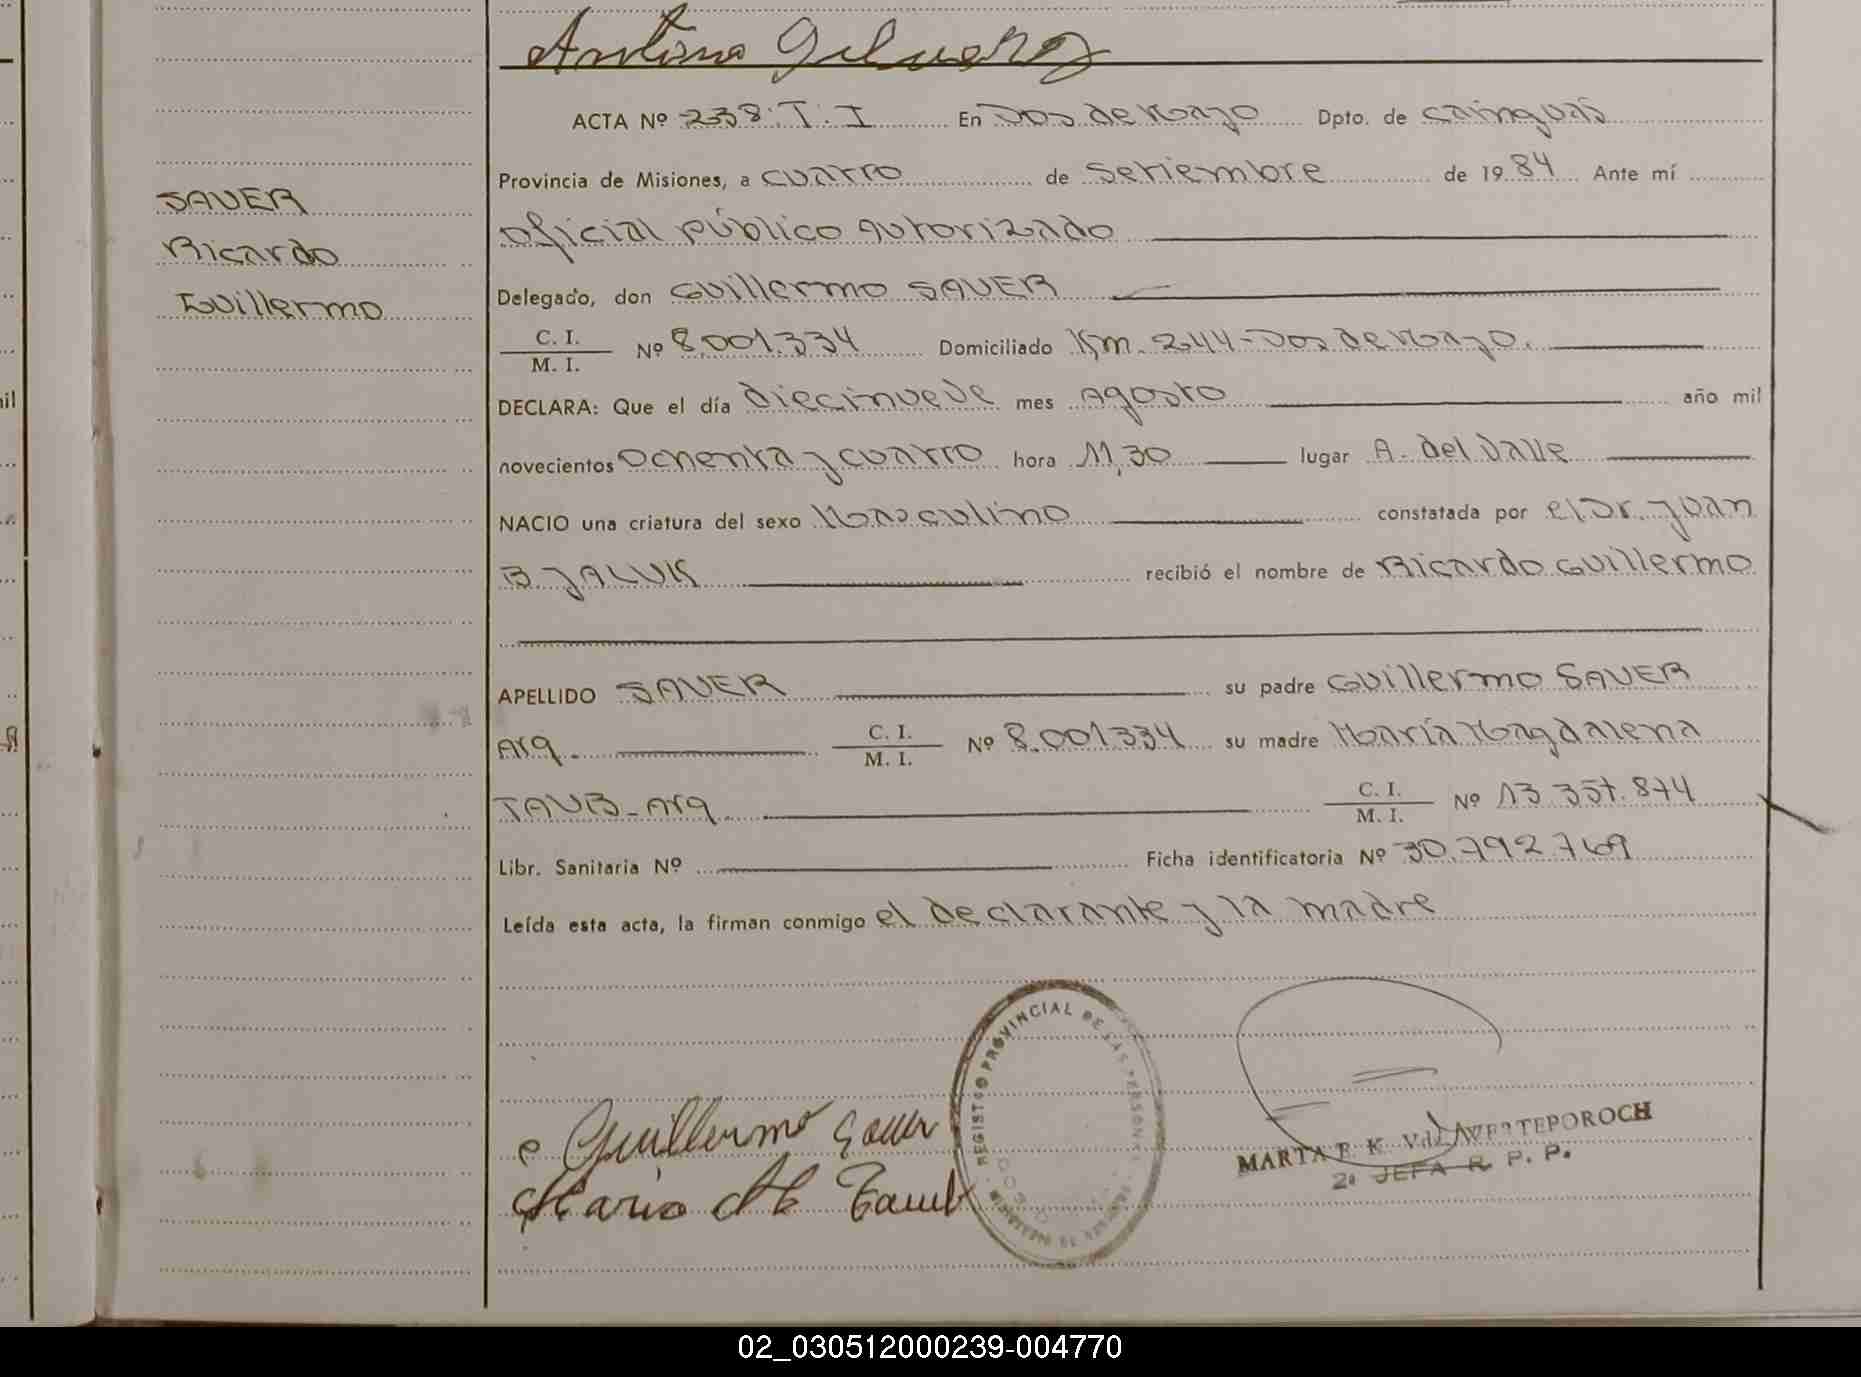 Antonio
ACTA Nº 238.T.I En Dos de Mayo Dpto. de Cainguás
Provincia de Misiones, a cuatro de setiembre de 1984 Ante mí
SAUER
oficial público autorizado
Ricardo
Delegado, don Guillermo SAUER
Guillermo
C. I.
M. I. Nº 8.001.334 Domiciliado Km. 244-Dos de Mayo.
DECLARA: Que el día diecinueve mes Agosto año mil
novecientos ochenta y cuatro hora 11,30 lugar A. del Valle
NACIO una criatura del sexo Masculino constatada por el Dr. Juan
B. JALUK recibió el nombre de Ricardo Guillermo
APELLIDO SAUER su padre Guillermo SAUER
Arg. C. I.
M. I. Nº 8.001334 su madre María Magdalena
TAUB-Arg C. I.
M. I. Nº 13.357.874
Libr. Sanitaria Nº Ficha identificatoria Nº 30.792.769
Leída esta acta, la firman conmigo el declarante y la madre
REGISTRO PROVINCIAL DE LAS PERSONAS
Guillermo Sauer
MARTA
2a JEFA R. P. P.
Maria M Taub
02_030512000239-004770